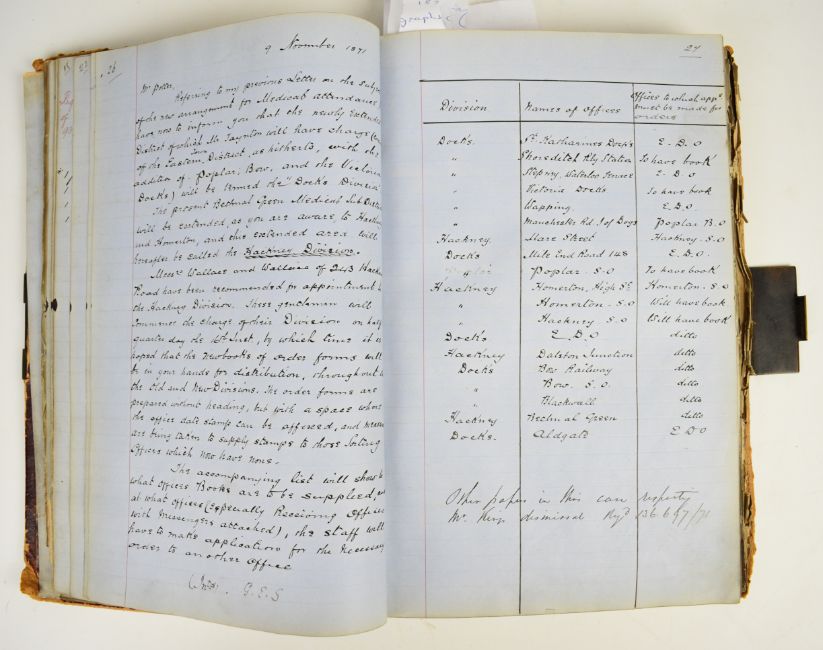 9 November 1871
Mr Potter,
Referring to my previous Letter on the subject
of the new arrangement for Medical attendance,
have now to inform you that the newly Extended
District of which Mr Taynton will have charge
of the Eastern District, as hitherto, with the
addition of Poplar, Bow, and the Victoria
Docks) will be termed the "Docks Division"
The present Bethnal Green Medical Sub District
will be extended, as you are aware, to Hackney
and Homerton, and this extended area will
hereafter be called the Hackney Division.
Messrs Wallace and Wallace of 243 Hackney
Road have been recommended for appointment to
the Hackney Division. These gentlemen will
commence the charge of their Division on half
quarter day the 14th Inst, by which time it is
hoped that the New books of order forms will
be in your hands for distribution, throughout
the Old and New Divisions. The order forms are
prepared without heading, but with a space where
the office date stamp can be affixed, and measures
are being taken to supply stamps to those Sorting
Offices which now have none.
The accompanying list will show to
what offices Books are to be supplied, and
at what offices (especially Receiving Offices
with Messengers attached), the staff will
have to make application for the necessary
order to another Office
G. E. S
26
27
Division Names of Offices Offices to which appn must be made for orders
Docks St Katharines Docks E. D. O
" Shoreditch Rly Station To have book
" Stepney, Waterloo Terrace E. D. O
" Victoria Docks To have book
" Wapping E. D. O
" Manchester Rd. I of Dogs Poplar B. O
Hackney Mare Street Hackney. S. O
Docks Mile End Road 148 E. D. O.
Poplar Poplar. S. O To have book
Hackney Homerton, High St Homerton. S. O
" Homerton. S. O Will have book
" Hackney S. O Will have book
Docks E. D. O ditto
Hackney Dalston Junction ditto
Docks Bow Railway ditto
" Bow. S. O. ditto
" Blackwall ditto
Hackney Bethnal Green ditto
Docks. Aldgate E D O
Other papers in this case respecting
Mr. King's dismissal Regd